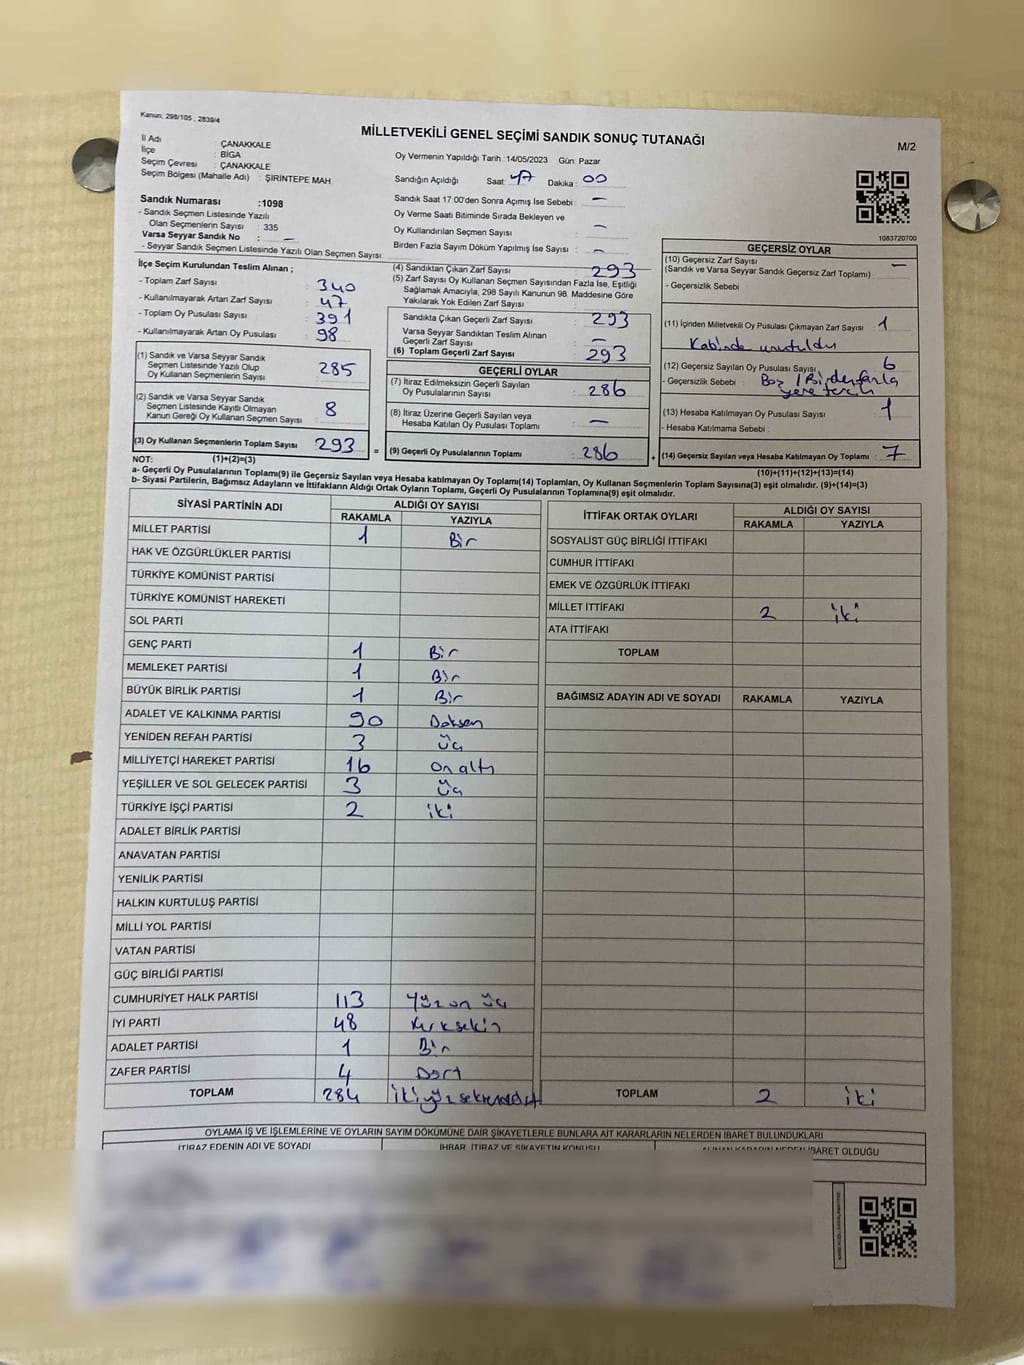 Kanun: 298/105 , 2839/4
MİLLETVEKİLİ GENEL SEÇİMİ SANDIK SONUÇ TUTANAĞI
M/2
İl Adı : ÇANAKKALE
İlçe : BİGA
Seçim Çevresi : ÇANAKKALE
Seçim Bölgesi (Mahalle Adı) : ŞİRİNTEPE MAH.
Oy Vermenin Yapıldığı Tarih :14/05/2023 Gün: Pazar
Sandığın Açıldığı Saat: 17 Dakika: 00
Sandık Saat 17:00'den Sonra Açımış İse Sebebi : —
Oy Verme Saati Bitiminde Sırada Bekleyen ve
Oy Kullandırılan Seçmen Sayısı : —
Birden Fazla Sayım Döküm Yapılmış İse Sayısı : —
Sandık Numarası :1098
- Sandık Seçmen Listesinde Yazılı
Olan Seçmenlerin Sayısı : 335
Varsa Seyyar Sandık No : —
- Seyyar Sandık Seçmen Listesinde Yazılı Olan Seçmen Sayısı:
1083720700
İlçe Seçim Kurulundan Teslim Alınan ;
- Toplam Zarf Sayısı : 340
- Kullanılmayarak Artan Zarf Sayısı : 47
- Toplam Oy Pusulası Sayısı : 391
- Kullanılmayarak Artan Oy Pusulası : 98
(1) Sandık ve Varsa Seyyar Sandık
Seçmen Listesinde Yazılı Olup
Oy Kullanan Seçmenlerin Sayısı : 285
(2) Sandık ve Varsa Seyyar Sandık
Seçmen Listesinde Kayıtlı Olmayan
Kanun Gereği Oy Kullanan Seçmen Sayısı : 8
(3) Oy Kullanan Seçmenlerin Toplam Sayısı : 293
(4) Sandıktan Çıkan Zarf Sayısı : 293
(5) Zarf Sayısı Oy Kullanan Seçmen Sayısından Fazla İse, Eşitliği
Sağlamak Amacıyla, 298 Sayılı Kanunun 98. Maddesine Göre
Yakılarak Yok Edilen Zarf Sayısı :
Sandıkta Çıkan Geçerli Zarf Sayısı : 293
Varsa Seyyar Sandıktan Teslim Alınan
Geçerli Zarf Sayısı : —
(6) Toplam Geçerli Zarf Sayısı : 293
GEÇERLİ OYLAR
(7) İtiraz Edilmeksizin Geçerli Sayılan
Oy Pusulalarının Sayısı : 286
(8) İtiraz Üzerine Geçerli Sayılan veya
Hesaba Katılan Oy Pusulası Toplamı : —
= (9) Geçerli Oy Pusulalarının Toplamı : 286
GEÇERSİZ OYLAR
(10) Geçersiz Zarf Sayısı : —
(Sandık ve Varsa Seyyar Sandık Geçersiz Zarf Toplamı)
- Geçersizlik Sebebi :
(11) İçinden Milletvekili Oy Pusulası Çıkmayan Zarf Sayısı : 1
Kabinde unutuldu
(12) Geçersiz Sayılan Oy Pusulası Sayısı : 6
- Geçersizlik Sebebi : Boş / Birden fazla
yere tercih
(13) Hesaba Katılmayan Oy Pusulası Sayısı : 1
- Hesaba Katılmama Sebebi :
+ (14) Geçersiz Sayılan veya Hesaba Katılmayan Oy Toplamı : 7
NOT: (1)+(2)=(3)
(10)+(11)+(12)+(13)=(14)
a- Geçerli Oy Pusulalarının Toplamı(9) ile Geçersiz Sayılan veya Hesaba katılmayan Oy Toplamı(14) Toplamları, Oy Kullanan Seçmenlerin Toplam Sayısına(3) eşit olmalıdır. (9)+(14)=(3)
b- Siyasi Partilerin, Bağımsız Adayların ve İttifakların Aldığı Ortak Oyların Toplamı, Geçerli Oy Pusulalarının Toplamına(9) eşit olmalıdır.
SİYASİ PARTİNİN ADI ALDIĞI OY SAYISI
RAKAMLA YAZIYLA
MİLLET PARTİSİ 1 Bir
HAK VE ÖZGÜRLÜKLER PARTİSİ
TÜRKİYE KOMÜNİST PARTİSİ
TÜRKİYE KOMÜNİST HAREKETİ
SOL PARTİ
GENÇ PARTİ 1 Bir
MEMLEKET PARTİSİ 1 Bir
BÜYÜK BİRLİK PARTİSİ 1 Bir
ADALET VE KALKINMA PARTİSİ 90 Doksan
YENİDEN REFAH PARTİSİ 3 üç
MİLLİYETÇİ HAREKET PARTİSİ 16 on altı
YEŞİLLER VE SOL GELECEK PARTİSİ 3 üç
TÜRKİYE İŞÇİ PARTİSİ 2 iki
ADALET BİRLİK PARTİSİ
ANAVATAN PARTİSİ
YENİLİK PARTİSİ
HALKIN KURTULUŞ PARTİSİ
MİLLİ YOL PARTİSİ
VATAN PARTİSİ
GÜÇ BİRLİĞİ PARTİSİ
CUMHURİYET HALK PARTİSİ 113 Yüz on üç
İYİ PARTİ 48 Kırksekiz
ADALET PARTİSİ 1 Bir
ZAFER PARTİSİ 4 Dört
TOPLAM 284 ikiyüz seksendört
İTTİFAK ORTAK OYLARI ALDIĞI OY SAYISI
RAKAMLA YAZIYLA
SOSYALİST GÜÇ BİRLİĞİ İTTİFAKI
CUMHUR İTTİFAKI
EMEK VE ÖZGÜRLÜK İTTİFAKI
MİLLET İTTİFAKI 2 iki
ATA İTTİFAKI
TOPLAM
BAĞIMSIZ ADAYIN ADI VE SOYADI RAKAMLA YAZIYLA
TOPLAM 2 iki
OYLAMA İŞ VE İŞLEMLERİNE VE OYLARIN SAYIM DÖKÜMÜNE DAİR ŞİKAYETLERLE BUNLARA AİT KARARLARIN NELERDEN İBARET BULUNDUKLARI
İTİRAZ EDENİN ADI VE SOYADI İHBAR, İTİRAZ VE ŞİKAYETİN KONUSU ALINAN KARARIN NEDEN İBARET OLDUĞU